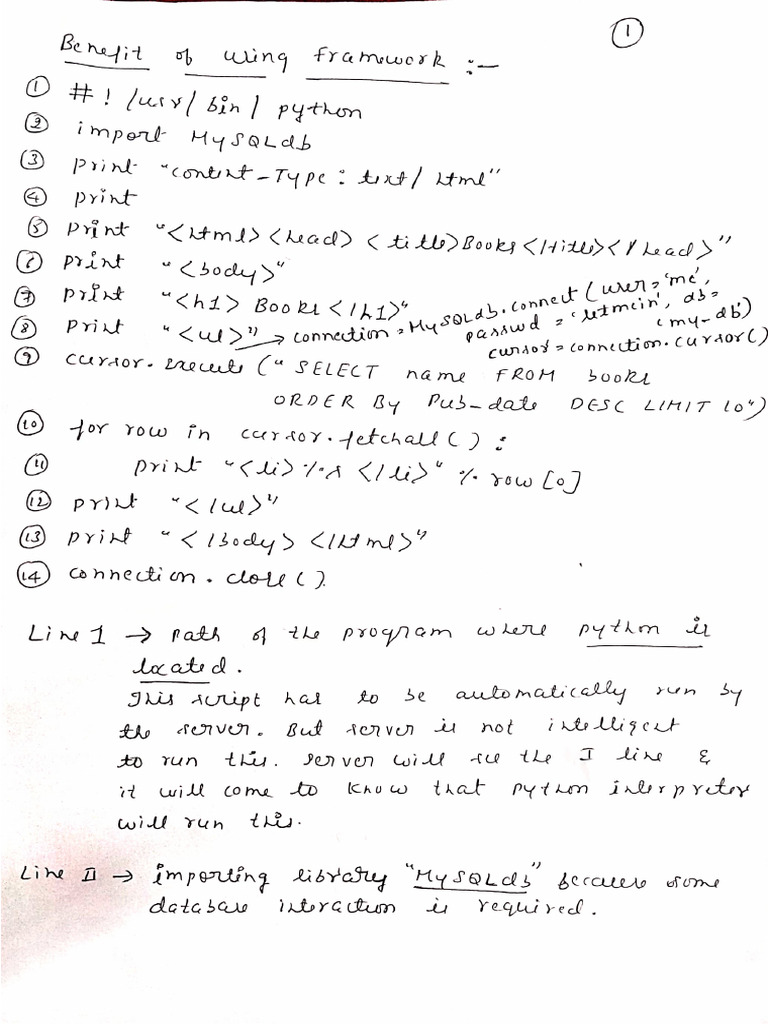 1
Benefit of using framework :-
1 #! /usr/ bin/ python
2 import MySQLdb
3 print "content-Type : text/ html"
4 print
5 print "<html><head> <title>Books</title></head>"
6 print "<body>"
7 print "<h1> Books </h1>"
8 print "<ul>" → connection = MySQLdb.connect (user = 'me',
passwd = 'letmein', db =
'my-db')
cursor = connection.cursor()
9 cursor.execute (" SELECT name FROM books
ORDER By Pub-date DESC LIMIT 10")
10 for row in cursor.fetchall() :
11 print "<li> %s </li>" % row [0]
12 print "</ul>"
13 print "</body> </html>"
14 connection.close().
Line 1 → Path of the program where python is
located.
This script has to be automatically run by
the server. But server is not intelligent
to run this. Server will see the I line &
it will come to know that python interpreter
will run this.
Line II → importing library "MySQLdb" because some
database interaction is required.